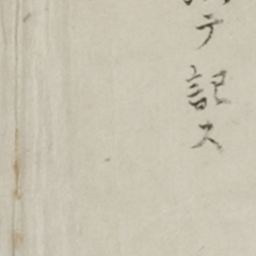 テ記ス